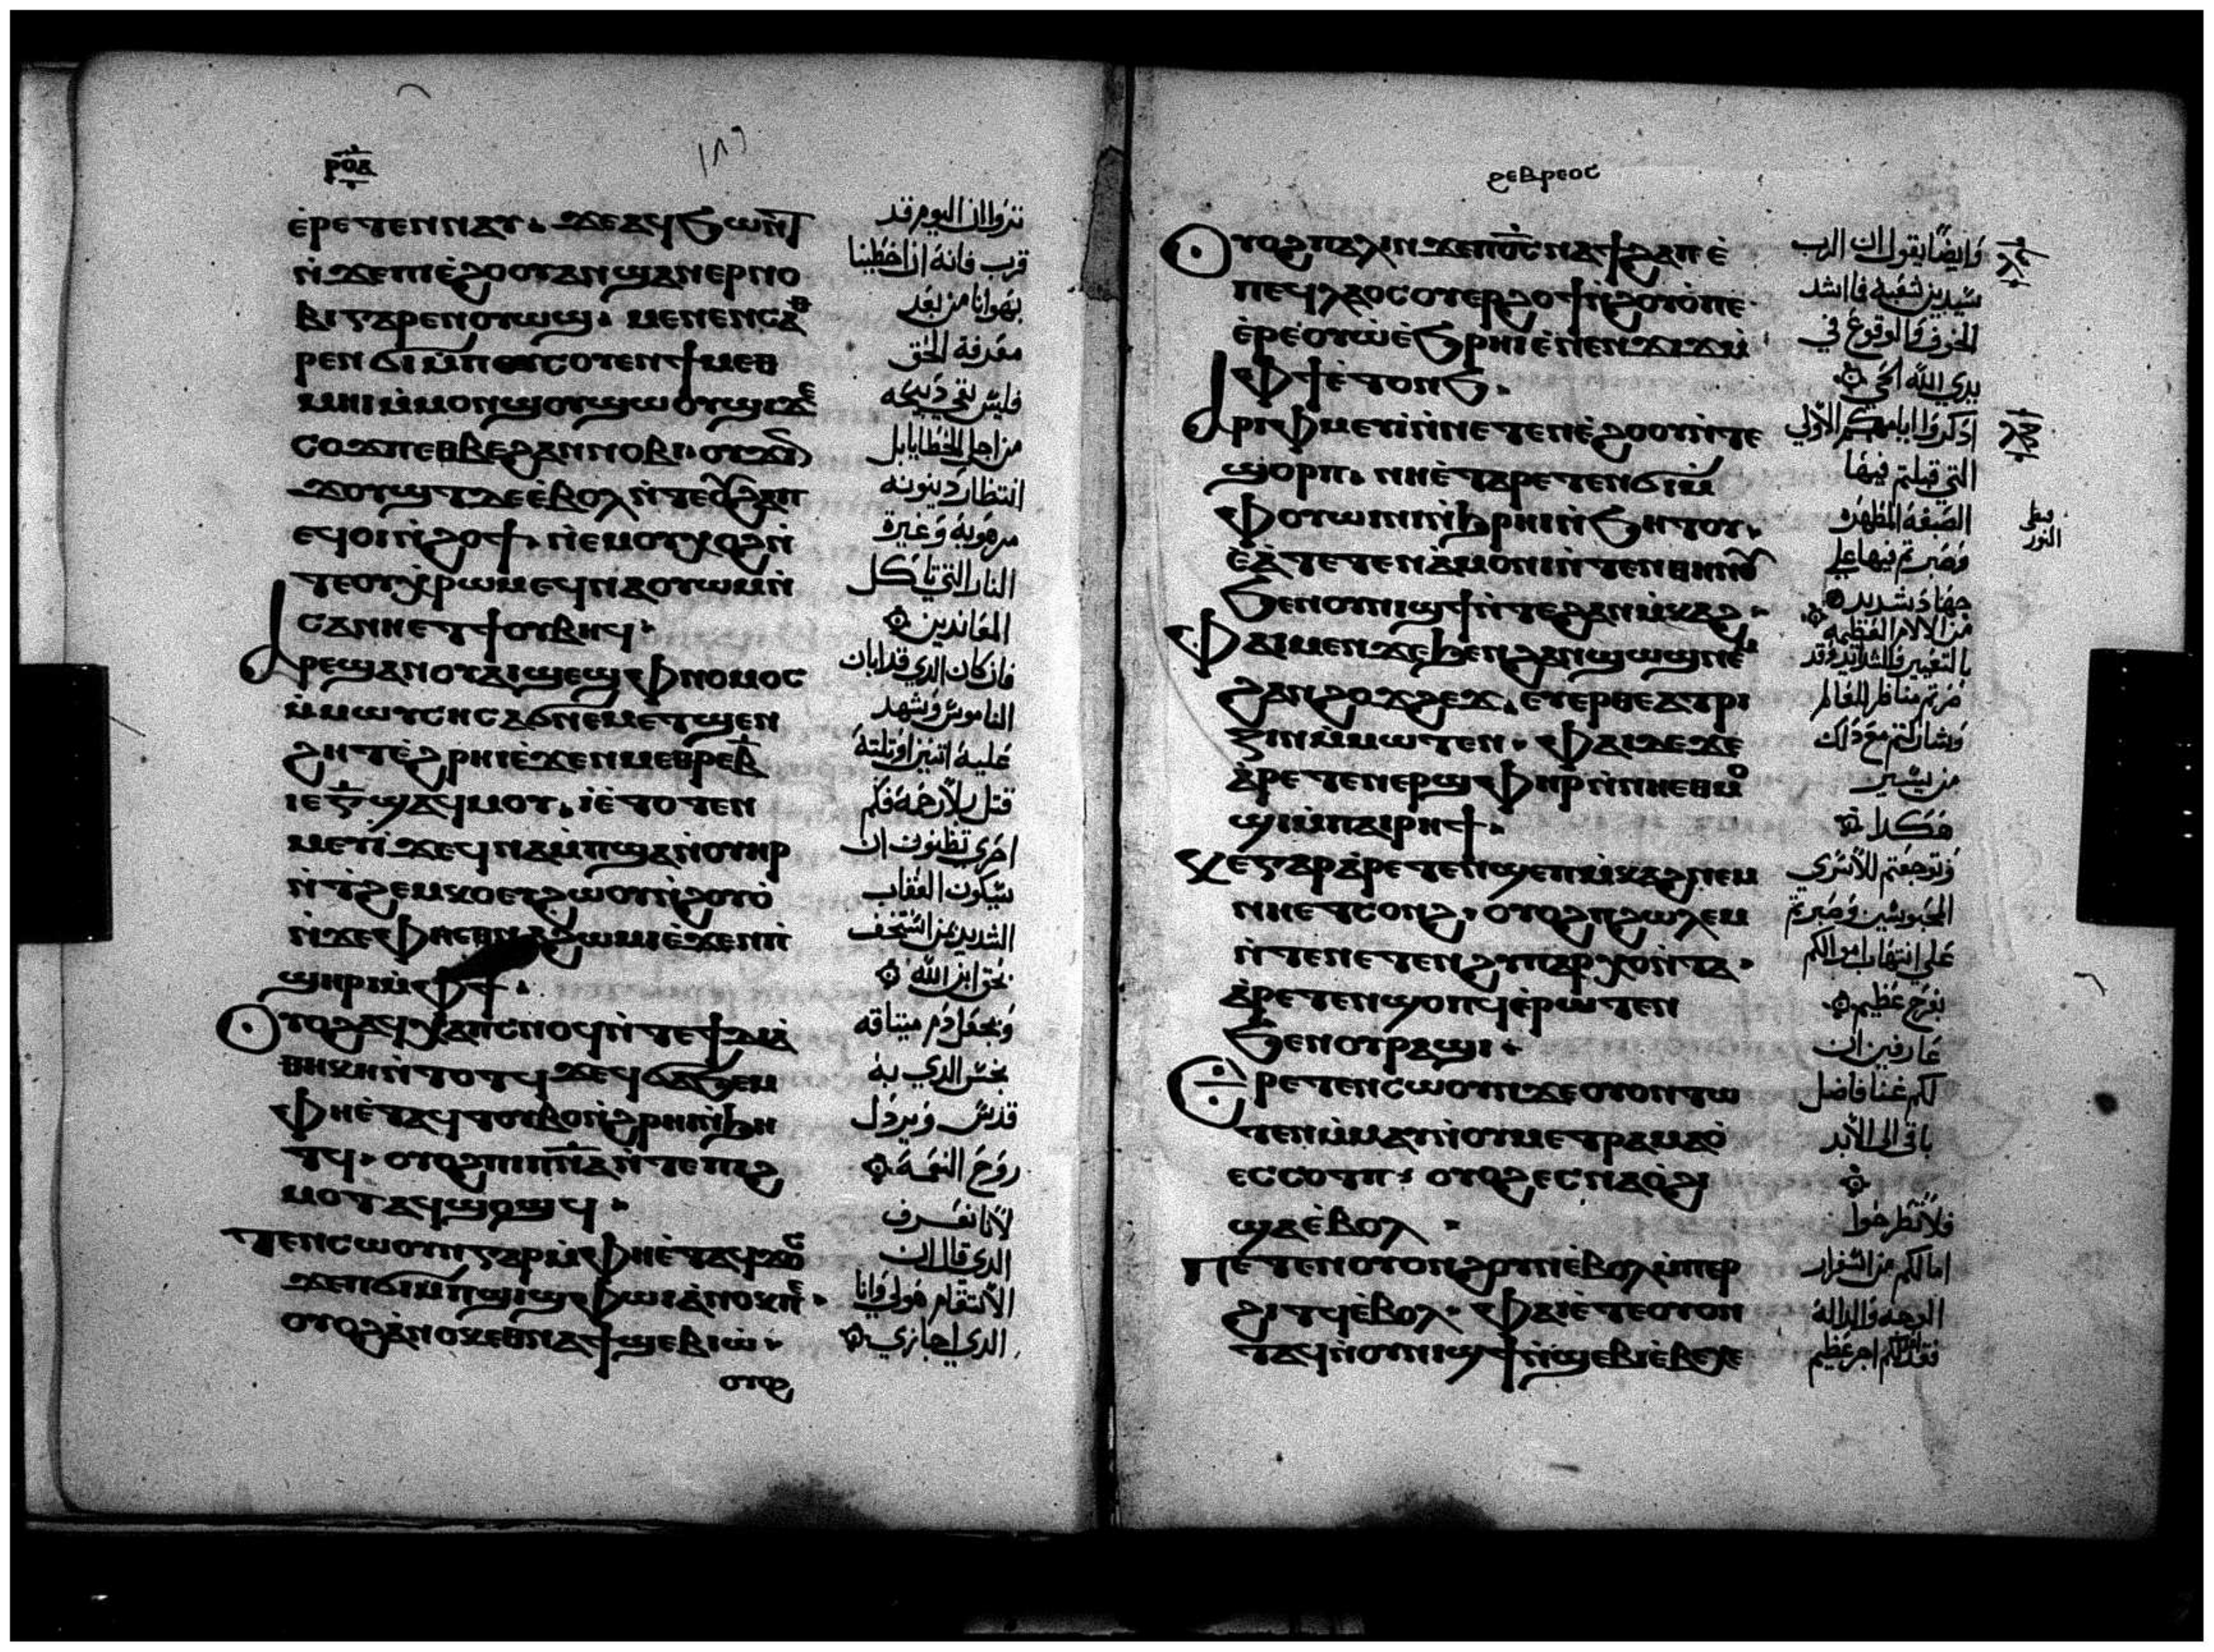 ⲣⲟⲇ
١٨٩
ⲉ̀ⲣⲉⲧⲉⲛⲛⲁⲩ. ϫⲉⲁϥϧⲱⲛⲧ
ⲛ̀ϫⲉⲡⲓⲉ̀ϩⲟⲟⲩⲁⲛϣⲁⲛⲉⲣⲛⲟ
ⲃⲓⲅⲁⲣⲉⲛⲟⲩⲱϣ. ⲙⲉⲛⲉⲛⲥⲁⲑ
ⲣⲉⲛϭⲓⲙ̀ⲡⲥⲟⲩⲉⲛϯⲙⲉⲑ
ⲙⲏⲓⲙ̀ⲙⲟⲛϣⲟⲩϣⲱⲟⲩϣⲓϫⲉ
ⲥⲟϫⲡⲉⲑⲃⲉϩⲁⲛⲛⲟⲃⲓ. ⲟⲩϫⲓⲛ
ϫⲟⲩϣⲧⲇⲉⲉ̀ⲃⲟⲗⲛ̀ⲧⲉⲟⲩϩⲁⲡ
ⲉϥⲟⲓⲛ̀ϩⲟϯ. ⲛⲉⲙⲟⲩⲭⲟϩⲛ̀
ⲧⲉⲟⲩⲭ̀ⲣⲱⲙⲉϥⲛⲁⲟⲩⲱⲙⲛ̀
ⲥⲁⲛⲛⲉⲧϯⲟⲩⲃⲏϥ.
ⲁⲣⲉϣⲁⲛⲟⲩⲁⲓϣⲉϣⲫⲛⲟⲙⲟⲥ
ⲙ̀ⲙⲱⲩⲥⲏⲥⲁϭⲛⲉⲙⲉⲧϣⲉⲛ
ϩⲏⲧⲉ̀ϩⲣⲏⲓⲉ̀ϫⲉⲛⲙⲉⲑⲣⲉⲃ̅
ⲓⲉⲅ̅ϣⲁϥⲙⲟⲩ. ⲓⲉ̀ⲧⲟⲧⲉⲛ
ⲙⲉⲩⲓ̀ϫⲉϥⲛⲁⲙ̀ⲡϣⲁⲛ̀ⲟⲩⲏⲣ
ⲛ̀ⲧ̀ϩⲉⲙⲕⲟⲉⲧϩⲱⲟⲩⲛ̀ϩⲟⲩⲟ̀
ⲛ̀ϫⲉⲫⲏⲉⲑⲛⲁϩⲱⲙⲓⲉ̀ϫⲉⲛⲡ̀
ϣⲏⲣⲓⲙ̀ⲫϯ.
ⲟⲩⲟϩⲁϥⲭⲁⲡⲥⲛⲟϥⲛ̀ⲧⲉϯⲇⲓⲁ
ⲑⲏⲕⲏⲛ̀ⲧⲟⲧϥϫⲉϥϭⲁϧⲉⲙ
ⲫⲏⲉ̀ⲧⲁϥⲧⲟⲩⲃⲟⲛ̀ϩⲣⲏⲓⲛ̀ϧⲏ
ⲧϥ. ⲟⲩⲟϩⲡⲓⲡⲛⲁⲛ̀ⲧⲉⲡⲓϩ
ⲙⲟⲧⲁϥϣⲟϣϥ.
ⲧⲉⲛⲥⲱⲟⲩⲛⲅⲁⲣⲙ̀ⲫⲏⲉ̀ⲧⲁϥϫⲟⲥ
ϫⲉⲡϭⲓⲙ̀ⲡϣⲓϣⲫⲱⲓⲁ̀ⲛⲟⲕⲡⲉ.
ⲟⲩⲟϩⲁ̀ⲛⲟⲕⲉⲑⲛⲁϯϣⲉⲃⲓⲱ̀.
ⲟⲩⲟϩ
تروا ان اليوم قد
قرب فانه ان اخطينا
بهوانا من بعد
معرفة الحق
فليس تبقي دبيحه
من اجل الخطايا بل
انتظار دينونه
مرهوبة وغيرة
النار التي تاكل
المعاندين
فان كان الدي قد اهان
الناموس وشهد
عليه اتنين او تلتة
قتل بلا رحمة فكم
احري تظنون ان
سيكون العقاب
الشديد بمن استخف
بحق ابن الله
وجعل دم ميتاقه
نجس الدي به
قدس وبردل
روح النعمة
لانا نعرف
الدي قال ان
الانتقام هو لي وانا
الدي اجازي
ϩⲉⲃⲣⲉⲟⲥ
ⲟⲩⲟϩⲡⲁⲗⲓⲛϫⲉⲡⲟ̅ⲥ̅ⲛⲁϯϩⲁⲡⲉ̀
ⲡⲉϥⲗⲁⲟⲥⲟⲩⲉⲣϩⲟϯⲛ̀ϩⲟⲩⲟ̀ⲡⲉ
ⲉ̀ⲣⲉ̀ⲟⲩⲱ̀ⲉ̀ϧⲣⲏⲓⲉ̀ⲛⲉⲛϫⲓϫⲙ̀
ⲫϯⲉ̀ⲧⲟⲛϧ.
ⲁⲣⲓⲫⲙⲉⲩⲓ̀ⲛ̀ⲛⲉⲧⲉⲛⲉ̀ϩⲟⲟⲩⲛ̀ⲧⲉ
ϣⲟⲣⲡ. ⲛⲏⲉ̀ⲧⲁⲣⲉⲧⲉⲛϭⲓⲙ̀
ⲫⲟⲩⲱⲓⲛⲓⲛ̀ϩⲣⲏⲓⲛ̀ϧⲏⲧⲟⲩ.
ⲉ̀ⲁ̀ⲧⲉⲧⲉⲛⲁ̀ⲙⲟⲛⲓⲛ̀ⲧⲉⲛⲑⲏⲛⲟⲩ
ϧⲉⲛⲟⲩⲛⲓϣϯⲛ̀ⲧⲉϩⲁⲛⲙ̀ⲕⲁϩ.
ⲫⲁⲓⲙⲉⲛϫⲉϧⲉⲛϩⲁⲛϣⲱϣⲛⲉⲙ
ϩⲁⲛϩⲟϫϩⲉϫ. ⲉⲩⲉⲣⲑⲉⲁⲧⲣⲓ
ⲍⲓⲛⲙ̀ⲙⲱⲧⲉⲛ. ⲫⲁⲓⲇⲉϫⲉ
ⲁ̀ⲣⲉⲧⲉⲛⲉⲣϣⲫⲏⲣⲛ̀ⲛⲏⲉⲑⲙⲟ
ϣⲓⲙ̀ⲡⲁⲓⲣⲏϯ.
ⲕⲉⲅⲁⲣⲁ̀ⲣⲉⲧⲉⲛϣⲉⲡⲙ̀ⲕⲁϩⲛⲉⲙ
ⲛⲏⲉⲧⲥⲟⲛϩ. ⲟⲩⲟϩⲡϩⲱⲗⲉⲙ
ⲛ̀ⲧⲉⲛⲉⲧⲉⲛϩⲩⲡⲁⲣⲭⲟⲛ̀ⲧⲁ.
ⲁ̀ⲣⲉⲧⲉⲛϣⲟⲡϥⲉ̀ⲣⲱⲧⲉⲛ
ϧⲉⲛⲟⲩⲣⲁϣⲓ.
ⲉⲣⲉⲧⲉⲛⲥⲱⲟⲩⲛϫⲉⲟⲩⲟⲛⲧⲱ
ⲧⲉⲛⲙ̀ⲙⲁⲩⲛ̀ⲟⲩⲙⲉⲧⲣⲁⲙⲁⲟ̀
ⲉⲥⲥⲟⲧⲡ. ⲟⲩⲟϩⲉⲥⲛⲁⲟ̀ϩⲓ
ϣⲁⲉ̀ⲃⲟⲗ.
ⲡⲉⲧⲉⲛⲟⲩⲟⲛϩⲟⲩⲛⲉ̀ⲃⲟⲗⲙ̀ⲡⲉⲣ
ϩⲓⲧϥⲉ̀ⲃⲟⲗ. ⲫⲁⲓⲉ̀ⲧⲉⲟⲩⲟⲛ
ⲧⲁϥⲛ̀ⲟⲩⲛⲓϣϯⲛ̀ϣⲉⲃⲓⲉ̀ⲃⲉϫⲉ
وايضا يقول ان الرب
سيدين شعبه فما اشد
الخوف والوقوع في
يدي الله الحي
ادكروا ايامكم الاولي
التي قبلتم فيها
الصبغة المطهره
وصبرتم فيها علي
جهاد شديد
من الالام العظيمه
بالتعيير والشدايد وقد
صرتم مناظر للعالم
وشاركتم مع دلك
من يسير
هكدا
وتوجعتم للاسري
المحبوسين وصبرتم
علي انتهاب اموالكم
بفرح عظيم
عارفين ان
لكم غنا فاضل
باقي الي الابد
فلا تطرحوا
امالكم من اسفرار
الوجه والداله